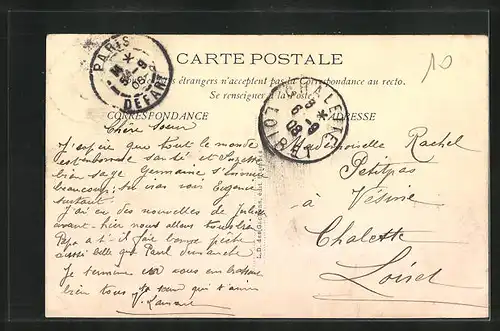 CARTE POSTALE
Tous les pays étrangers n'acceptent pas la Correspondance au recto.
Se renseigner à la Poste
CORRESPONDANCE
ADRESSE
PARIS
DÉPART
CHALETTE
LOIRET
10
Chère Soeur
J'espère que tout le monde
est en bonne santé et Suzette
bien sage Germaine s'ennuie
beaucoup
J'ai eu des nouvelles de Juliette
avant-hier nous allons tous bien
Papa a t-il fait bonne pêche
aussi belle que Paul dimanche
Je termine en vous embrassant
bien tous ta soeur qui t'aime
Mademoiselle Rachel
Petitpas
à Vésine
Chalette
Loiret